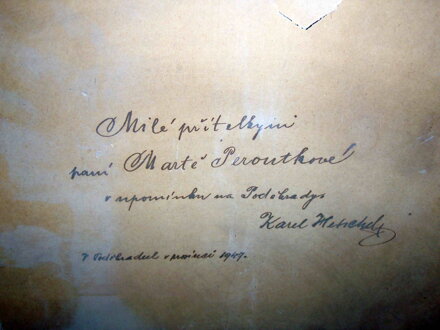 Milé přítelkyni
paní Martě Peroutkové
v upomínku na Poděbrady
Karel
V Poděbradech v prosinci 1947.